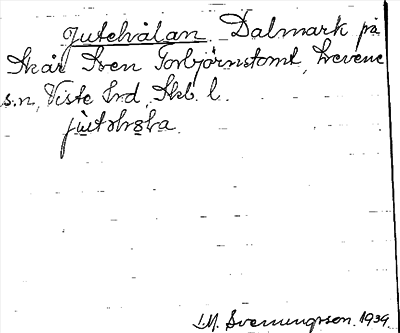 Jutehålan Dalmark på
Skår Sven Torbjörnstomt, Levene
s:n, Viste hrd, Skb. l.
J. M. Svenungsson. 1939.